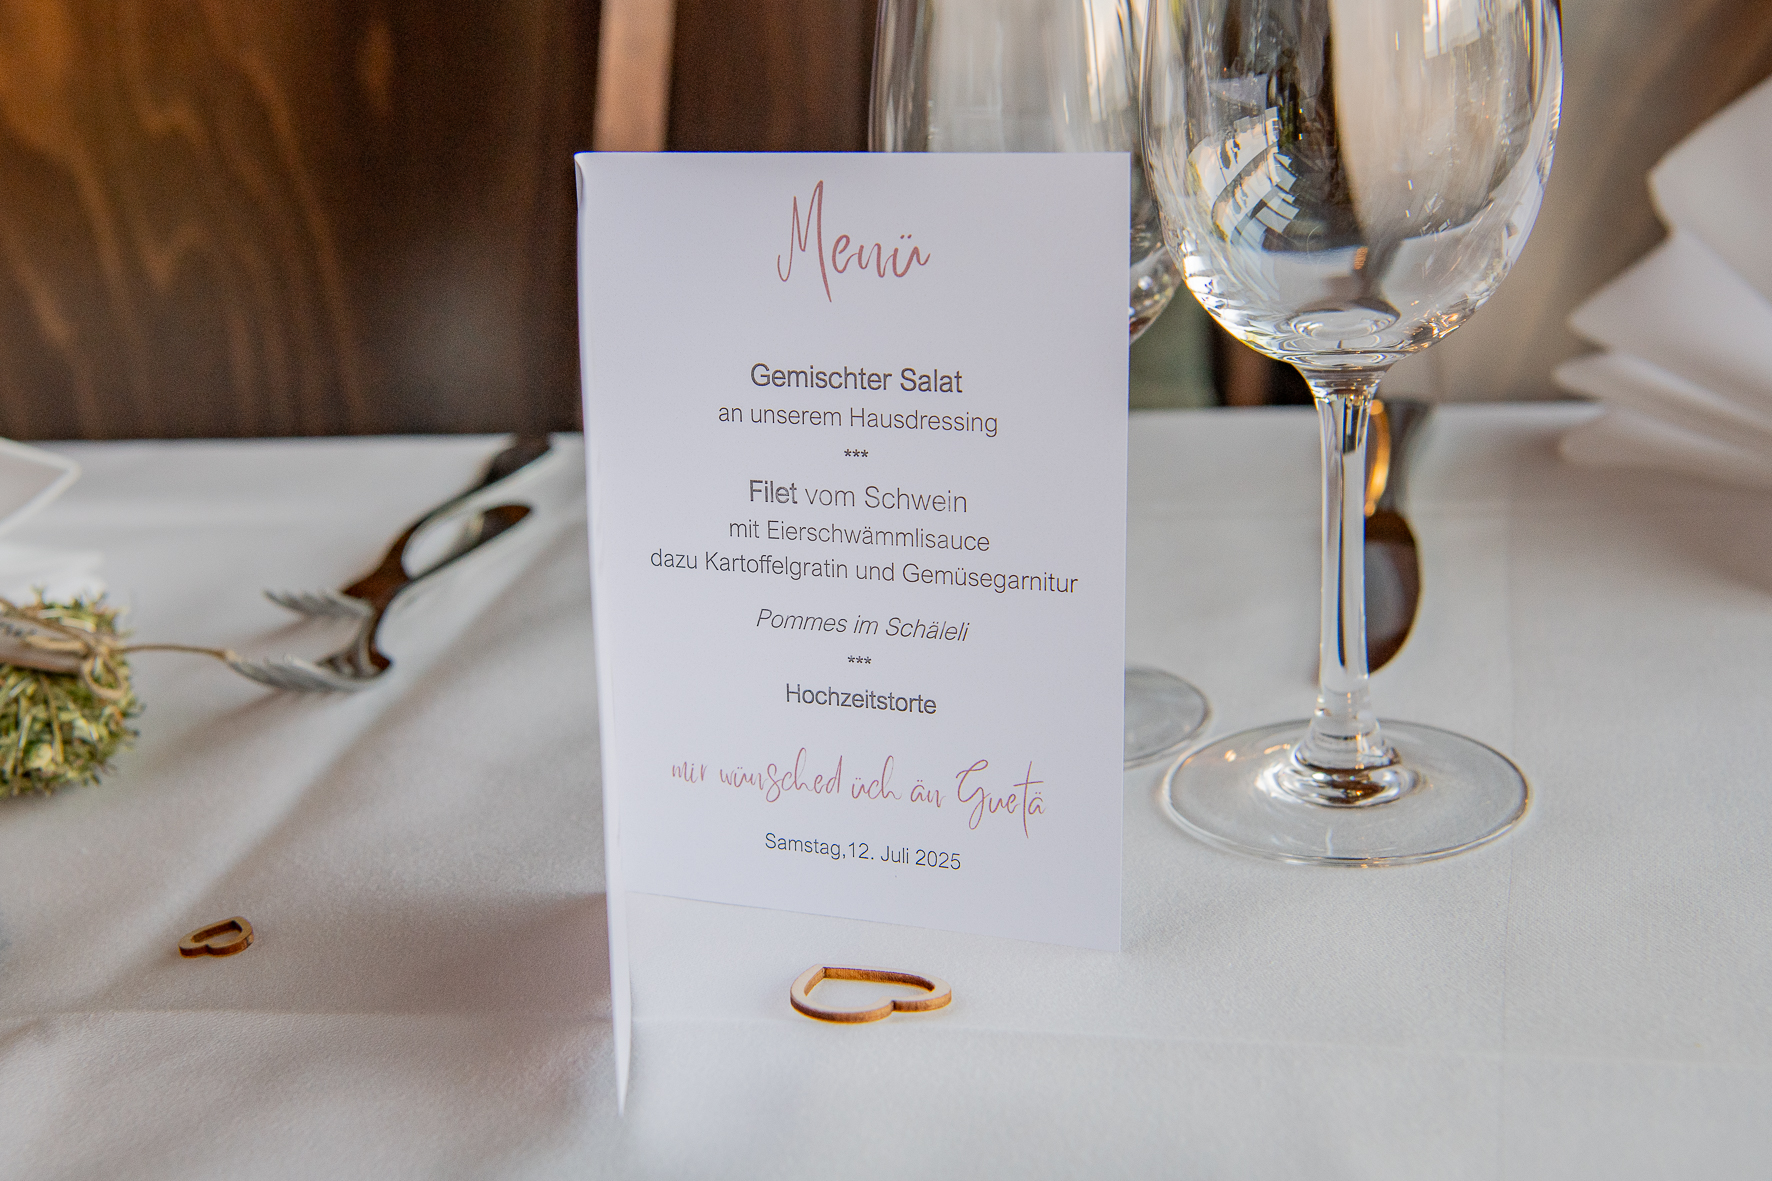 Menü
Gemischter Salat
an unserem Hausdressing
***
Filet vom Schwein
mit Eierschwämmlisauce
dazu Kartoffelgratin und Gemüsegarnitur
Pommes im Schäleli
***
Hochzeitstorte
mir wünsched üch än Guetä
Samstag,12. Juli 2025